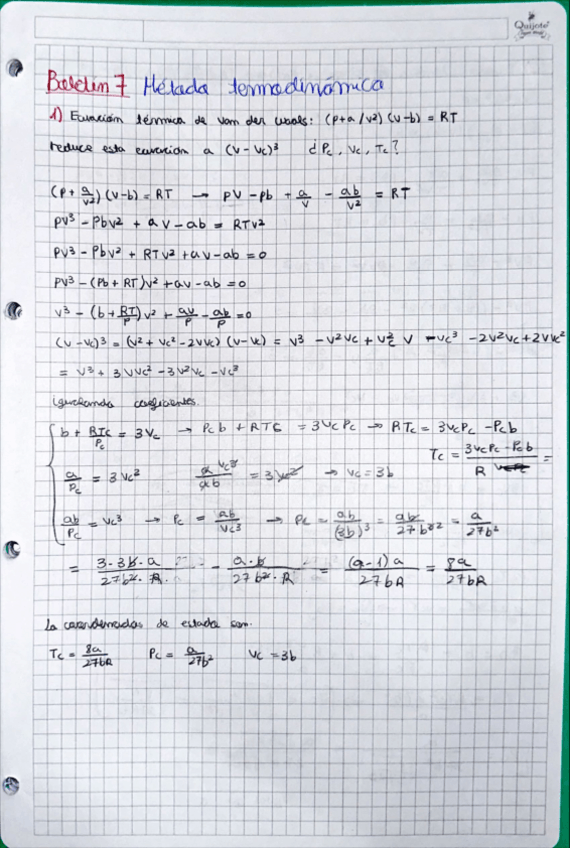 Quijote
Boletin 7 Método termodinámica
1) Ecuación térmica de van der waals: (p+a/v²)(v-b) = RT
reduce esta ecuación a (v-vc)³ ¿Pc, vc, Tc?
(p+a/v²)(v-b) = RT → pv - pb + a/v - ab/v² = RT
pv³ - Pbv² + av - ab = RTv²
pv³ - Pbv² + RTv² + av - ab = 0
pv³ - (Pb + RT)v² + av - ab = 0
v³ - (b + RT/P)v² + av/p - ab/p = 0
(v-vc)³ = (v² + vc² - 2vvc)(v-vc) = v³ - v²vc + vc² v - vc³ - 2v²vc + 2vvc²
= v³ + 3vvc² - 3v²vc - vc³
igualando coeficientes.
b + RTc/Pc = 3vc → Pcb + RTc = 3vcPc → RTc = 3vcPc - Pcb
Tc = (3vcPc - Pcb)/R =
a/Pc = 3vc² a vc³/ab = 3vc² → vc = 3b
ab/Pc = vc³ → Pc = ab/vc³ → Pc = ab/(3b)³ = ab/27b³ = a/27b²
= 3·3b·a/27b²·R - a·b/27b²·R = (9-1)a/27bR = 8a/27bR
La coordenadas de estado son.
Tc = 8a/27bR Pc = a/27b² vc = 3b